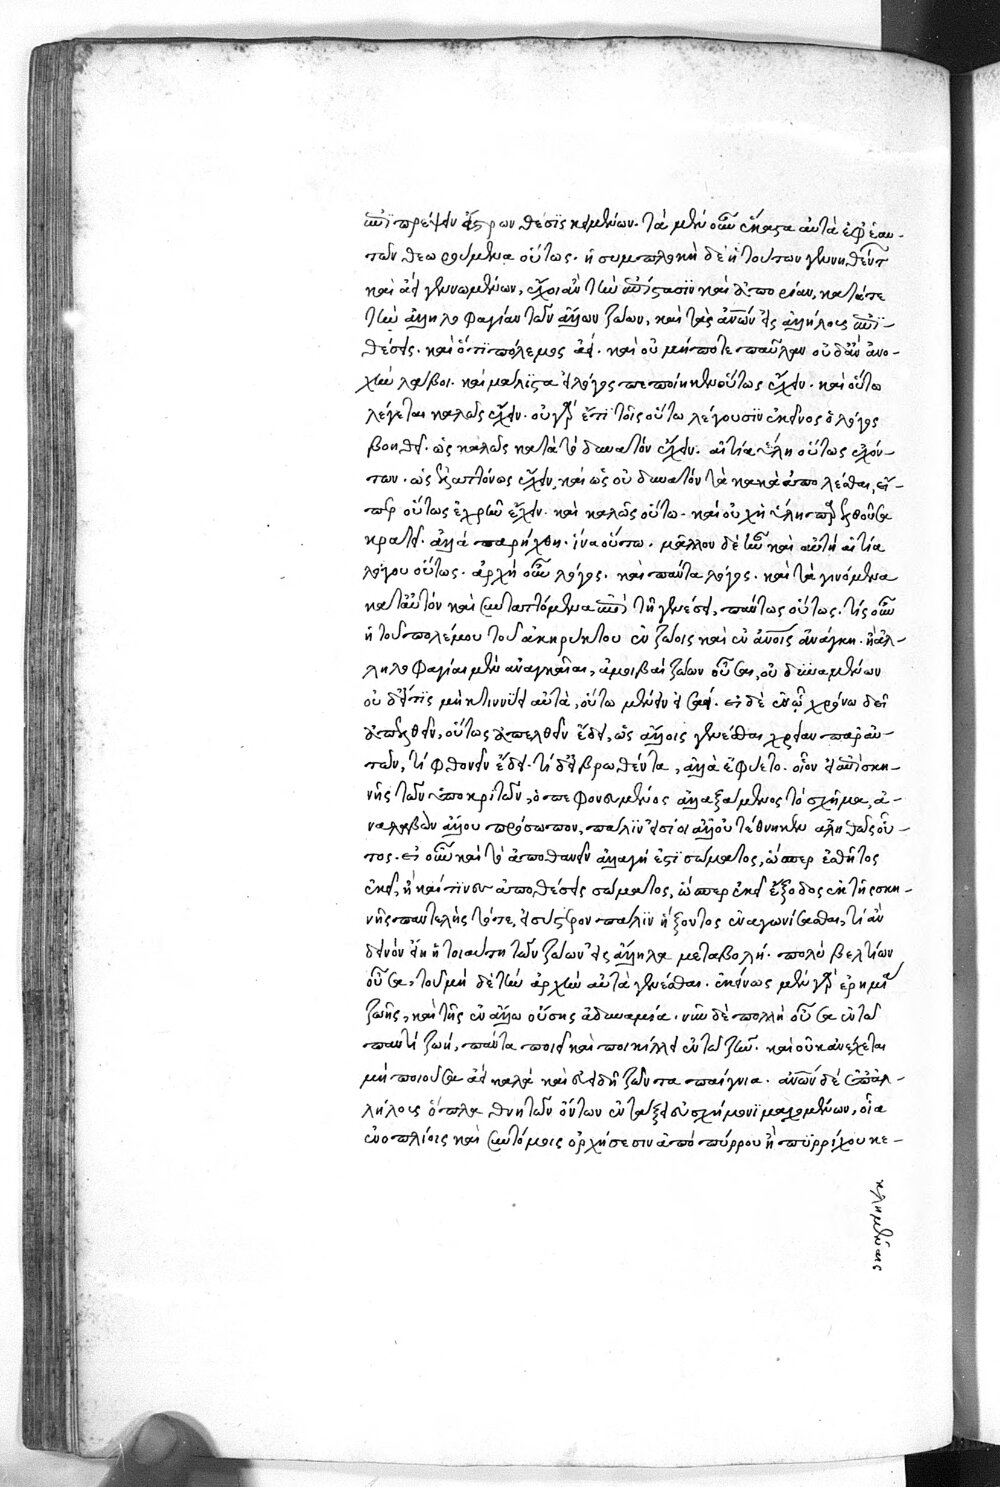 ἐπιπρέπειν ἄστρων θέσις κειμένων. τὰ μὲν οὖν ἕκαστα αὐτὰ ἐφ' ἑαυ-
τῶν θεωρούμενα οὕτως. ἡ συμπλοκὴ δὲ ἡ τούτων γεννηθέντων
καὶ ἀεὶ γεννωμένων, ἔχοι ἂν τὴν ἐπίστασιν καὶ ἀπορίαν, κατά τε
τὴν ἀλληλοφαγίαν τῶν ἄλλων ζώων, καὶ τὰς ἀνθρώπων εἰς ἀλλήλους ἐπι-
θέσεις. καὶ ὅτι πόλεμος ἀεί. καὶ οὐ μήποτε παῦλαν οὐδ' ἂν ἀνο-
χὴν λάβοι. καὶ μάλιστα εἰ λόγος πεποίηκεν οὕτως ἔχειν. καὶ οὕτω
λέγεται καλῶς ἔχειν. οὐ γὰρ ἔτι τοῖς οὕτω λέγουσιν ἐκεῖνος ὁ λόγος
βοηθεῖ. ὡς καλῶς κατὰ τὸ δυνατὸν ἔχειν. αἰτία ὕλη οὕτως ἐχόν-
των. ὡς ἐλαττόνως ἔχειν, καὶ ὡς οὐ δυνατὸν τὰ κακὰ ἀπολέσθαι, εἴ-
περ οὕτως ἐχρῆν ἔχειν. καὶ καλῶς οὕτω. καὶ οὐχ ἡ ὕλη παρελθοῦσα
κρατεῖ. ἀλλὰ παρήχθη. ἵνα οὕτω. μᾶλλον δὲ ἦν καὶ αὐτὴ αἰτία
λόγου οὕτως. ἀρχὴ οὖν λόγος. καὶ πάντα λόγος. καὶ τὰ γινόμενα
κατ' αὐτὸν καὶ συνταττόμενα ἐπὶ τῇ γενέσει, πάντως οὕτως. τίς οὖν
ἡ τοῦ πολέμου τοῦ ἀκηρύκτου ἐν ζώοις καὶ ἐν ἀνθρώποις ἀνάγκη. ἢ ἀλ-
ληλοφαγίαι μὲν ἀναγκαῖαι, ἀμοιβαὶ ζώων οὖσαι, οὐ δυναμένων
οὐδ' εἴ τις μὴ κτιννύοι αὐτὰ, οὕτω μένειν εἰς ἀεί. εἰ δὲ ἐν ᾧ χρόνω δεῖ
ἀπελθεῖν, οὕτως ἀπελθεῖν ἔδει, ὡς ἄλλοις γενέσθαι χρείαν παρ' αὐ-
τῶν, τί φθονεῖν ἔδει. τί δ' εἰ βρωθέντα, ἄλλα ἐφύετο. οἷον εἰ ἐπὶ σκη-
νῆς τῶν ὑποκριτῶν, ὁ πεφονευμένος ἀλλαξάμενος τὸ σχῆμα, ἀ-
ναλαβὼν ἄλλου πρόσωπον, πάλιν εἰσίοι ἀλλ' οὐ τέθνηκεν ἀληθῶς οὗ-
τος. εἰ οὖν καὶ τὸ ἀποθανεῖν ἀλλαγή ἐστι σώματος, ὥσπερ ἐσθῆτος
ἐκεῖ, ἢ καί τισιν ἀποθέσεις σώματος, ὥσπερ ἐκεῖ ἔξοδος ἐκ τῆς σκη-
νῆς παντελὴς τότε, εἰσύστερον πάλιν ἥξοντος ἐναγωνίσασθαι, τί ἂν
δεινὸν εἴη ἡ τοιαύτη τῶν ζώων εἰς ἄλληλα μεταβολή. πολὺ βελτίων
οὖσα, τοῦ μὴ δὲ τὴν ἀρχὴν αὐτὰ γενέσθαι. ἐκείνως μὲν γὰρ ἐρημία
ζωῆς, καὶ τῆς ἐν ἄλλω οὔσης ἀδυναμία. νῦν δὲ πολλὴ οὖσα ἐν τῶ
παντὶ ζωή, πάντα ποιεῖ καὶ ποικίλλει ἐν τῶ ζῆν. καὶ οὐκ ἀνέχεται
μὴ ποιοῦσα ἀεὶ καλὰ καὶ εὐειδῆ ζῶντα παίγνια. ἀνθρώπων δὲ ἐπ' ἀλ-
λήλους ὅπλα θνητῶν ὄντων ἐν τάξει εὐσχήμονι μαχομένων, οἷα
ἐνοπλίοις καὶ συντόμοις ὀρχήσεσιν ἀπὸ πύρρου ἢ πυρρίχου κε-
κλημέναις